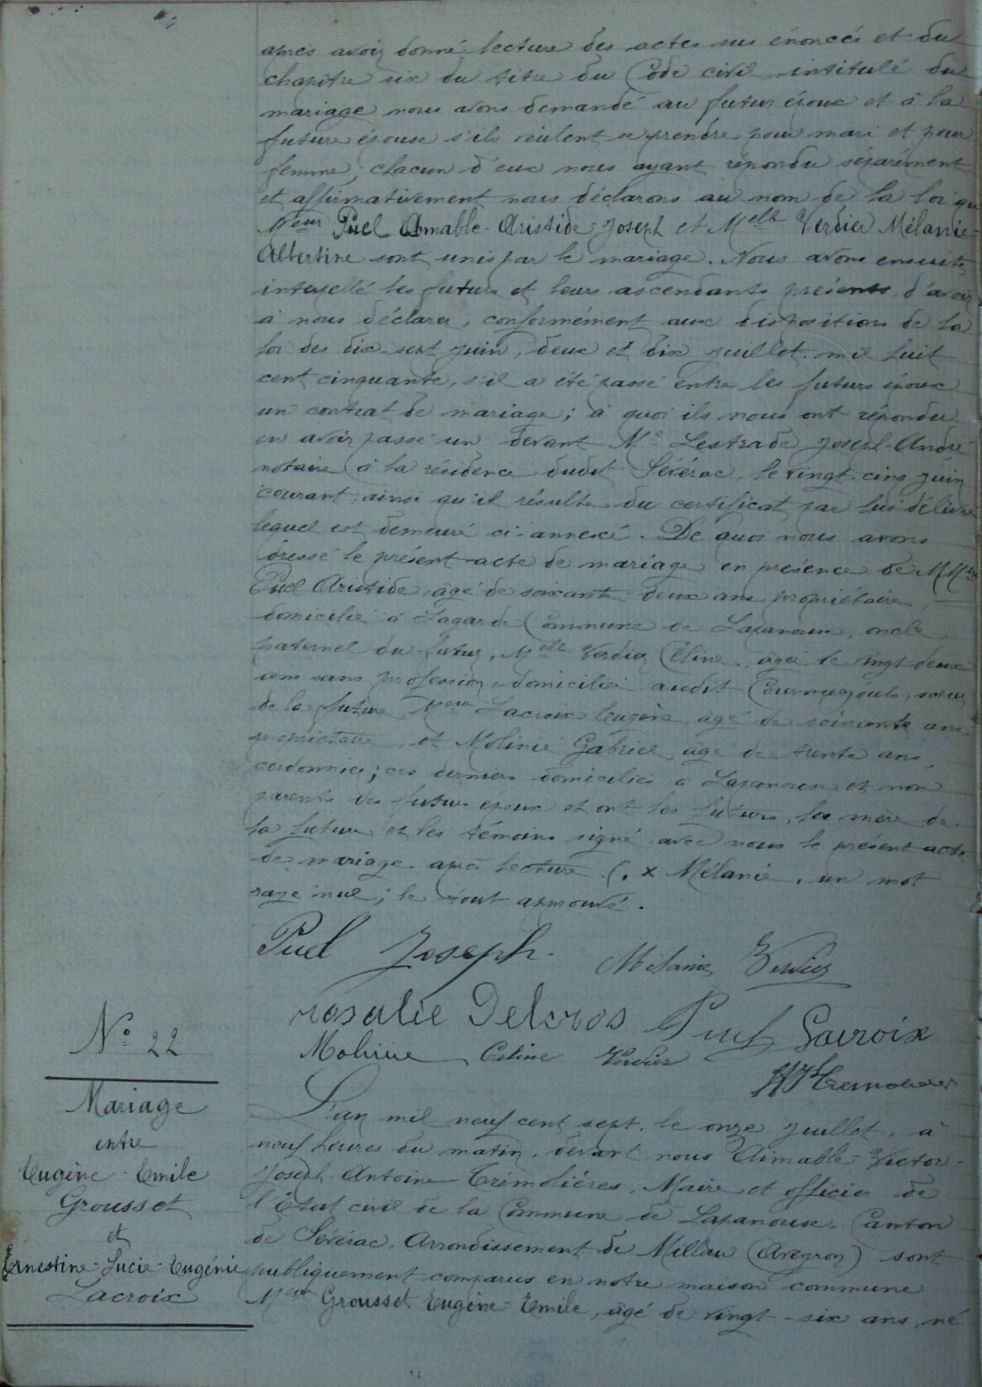 après avoir donné lecture des actes sus énoncés et du
chapitre six du titre du Code civil intitulé du
mariage nous avons demandé au futur époux et à la
future épouse s'ils veulent se prendre pour mari et pour
femme; chacun d'eux nous ayant répondu séparément
et affirmativement nous déclarons au nom de la loi que
Mr Puel Amable-Aristide-Joseph et Melle Verdier Mélanie-
Albertine sont unis par le mariage. Nous avons ensuite
interpellé les futurs et leurs ascendants présents d'avoir
à nous déclarer, conformément aux dispositions de la
loi des dix-sept juin, deux et dix juillet mil huit
cent cinquante, s'il a été passé entre les futurs époux
un contrat de mariage; à quoi ils nous ont répondu
en avoir passé un devant Me Lestrade Joseph-André
notaire à la résidence dudit Sévérac, le vingt cinq juin
courant, ainsi qu'il résulte du certificat par lui délivré
lequel est demeuré ci-annexé. De quoi nous avons
dressé le présent acte de mariage en présence de MM.
Puel Aristide, âgé de soixante-deux ans, propriétaire,
domicilié à Lagarde Commune de Lapanouse, oncle
paternel du futur, Melle Verdier Céline, âgée de vingt deux
ans sans profession, domiciliée audit Cournuéjouls, sœur
de la future, Lacroix Eugène, âgé de soixante ans,
propriétaire, et Molinié Gabriel âgé de trente ans,
cordonnier; ces derniers domiciliés à Lapanouse et non
parents des futurs époux et ont les futurs, la mère de
la future et les témoins signé avec nous le présent acte
de mariage après lecture (. x Mélanie, un mot
rayé nul; le tout approuvé.
Puel Joseph. Mélanie Verdier
rosalie Delcros Puel Lacroix
Molinié Céline Verdier
Tremolières
N° 22
Mariage
entre
Eugène-Emile
Grousset
et
Ernestine-Lucie-Eugénie
Lacroix
L'an mil neuf cent sept, le onze juillet, à
neuf heures du matin, devant nous Aimable-Victor-
Joseph-Antoine Trémolières, Maire et officier de
l'Etat civil de la Commune de Lapanouse, Canton
de Sévérac, Arrondissement de Millau (Aveyron) sont
publiquement comparus en notre maison commune
Mr Grousset Eugène-Emile, âgé de vingt-six ans, né